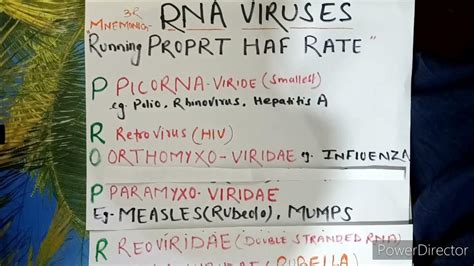 RNA VIRUSES
MNEMONIC-
"Running PROPRT HAF RATE"
P PICORNA-VIRIDE (Smallest)
eg. Polio, Rhinovirus, Hepatitis A
R Retrovirus (HIV)
O ORTHOMYXO-VIRIDAE eg. INFLUENZA
P PARAMYXO-VIRIDAE
Eg- MEASLES (Rubeola), MUMPS
R REOVIRIDAE (DOUBLE STRANDED RNA)
(RUBELLA)
PowerDirector